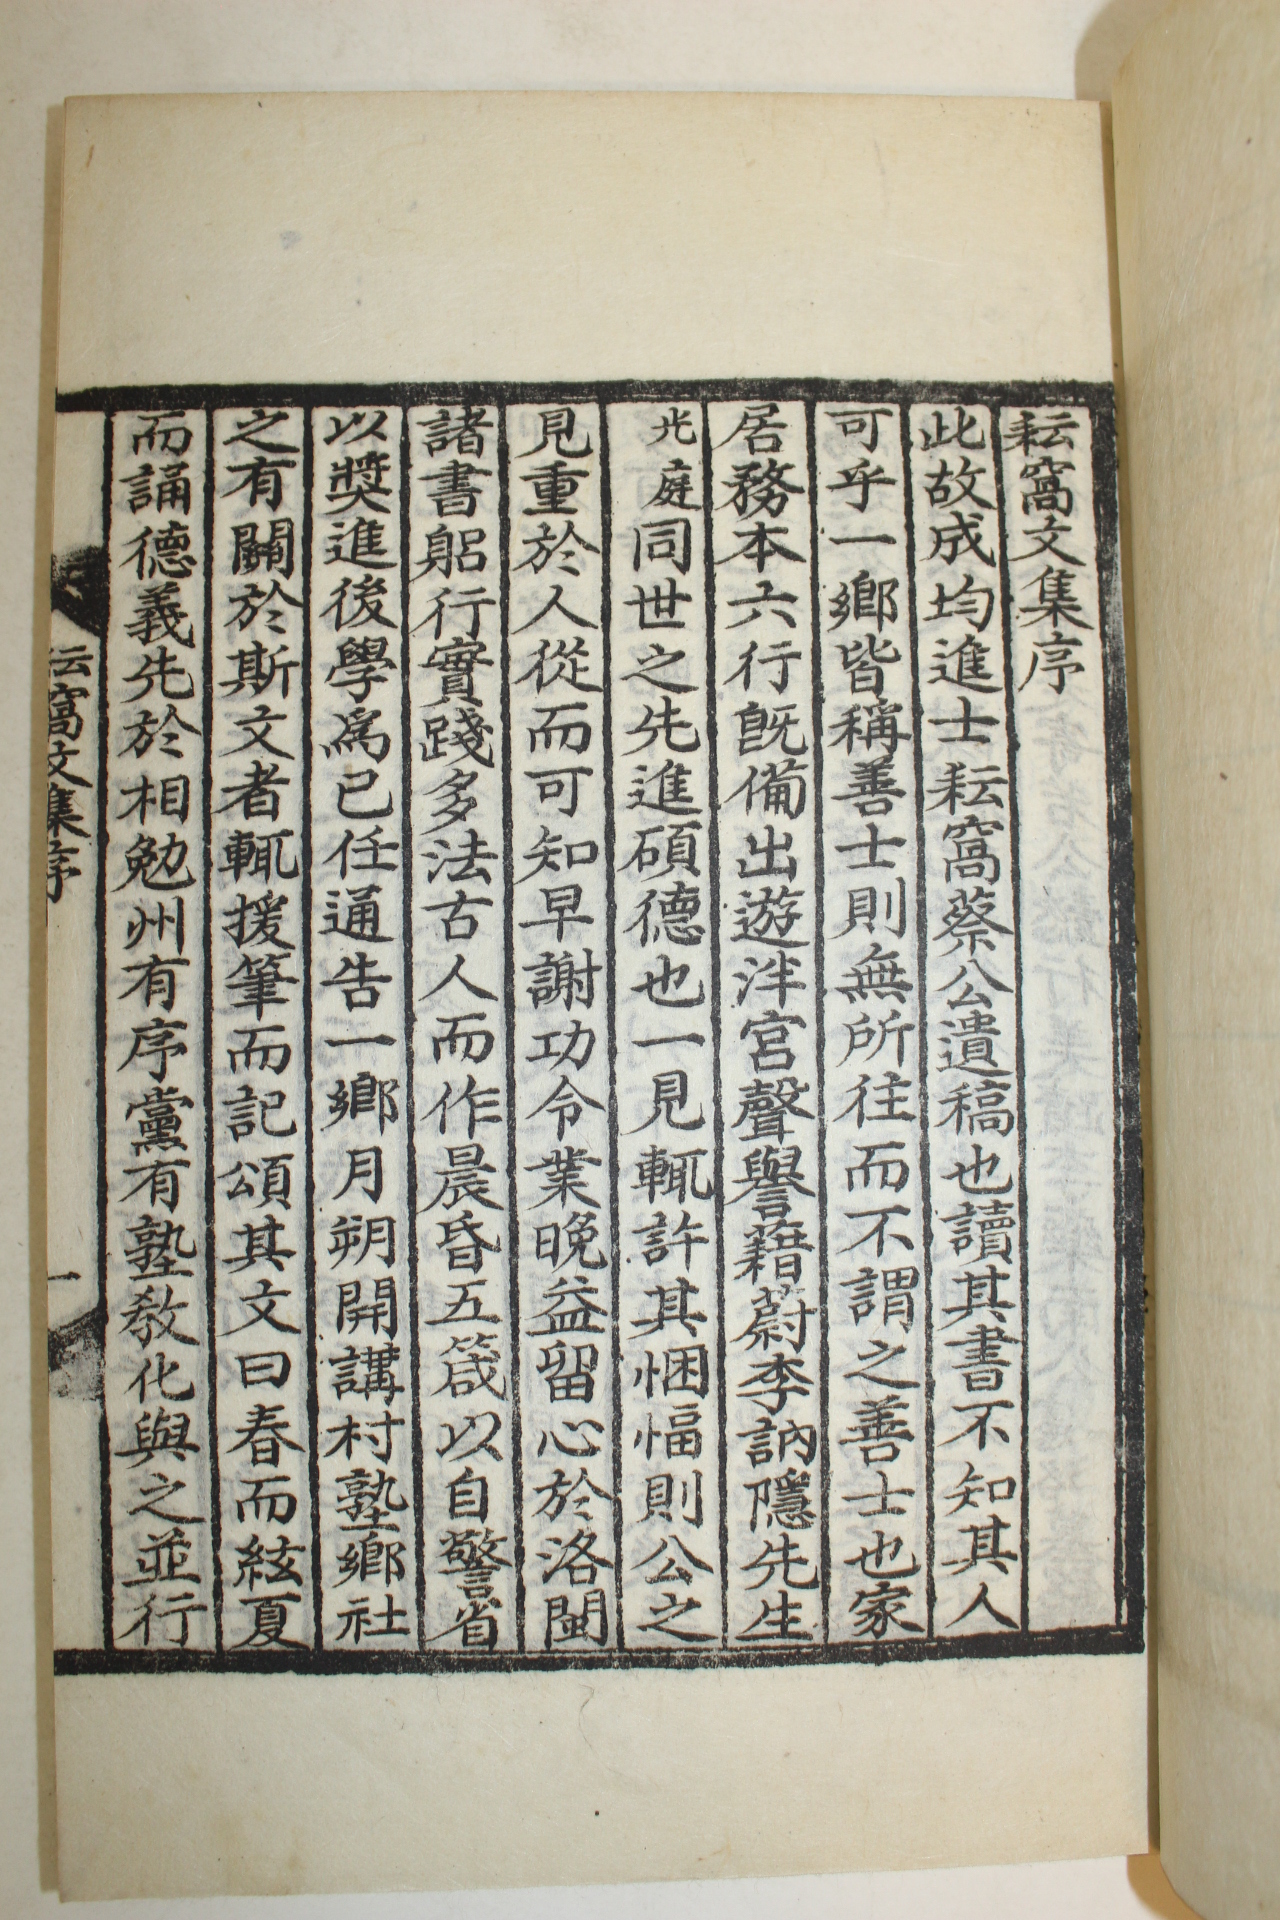 耘窩文集序
此故成均進士耘窩蔡公遺稿也讀其書不知其人
可乎一鄉皆稱善士則無所往而不謂之善士也家
居務本六行旣備出遊泮宮聲譽藉蔚李訥隱先生
光庭同世之先進碩德也一見輒許其悃愊則公之
見重於人從而可知早謝功令業晩益留心於洛閩
諸書躬行實踐多法古人而作晨昏五箴以自警省
以奬進後學爲己任通告一鄉月朔開講村塾鄉社
之有關於斯文者輒援筆而記頌其文曰春而絃夏
而誦德義先於相勉州有序黨有塾敎化與之並行
耘窩文集序
一